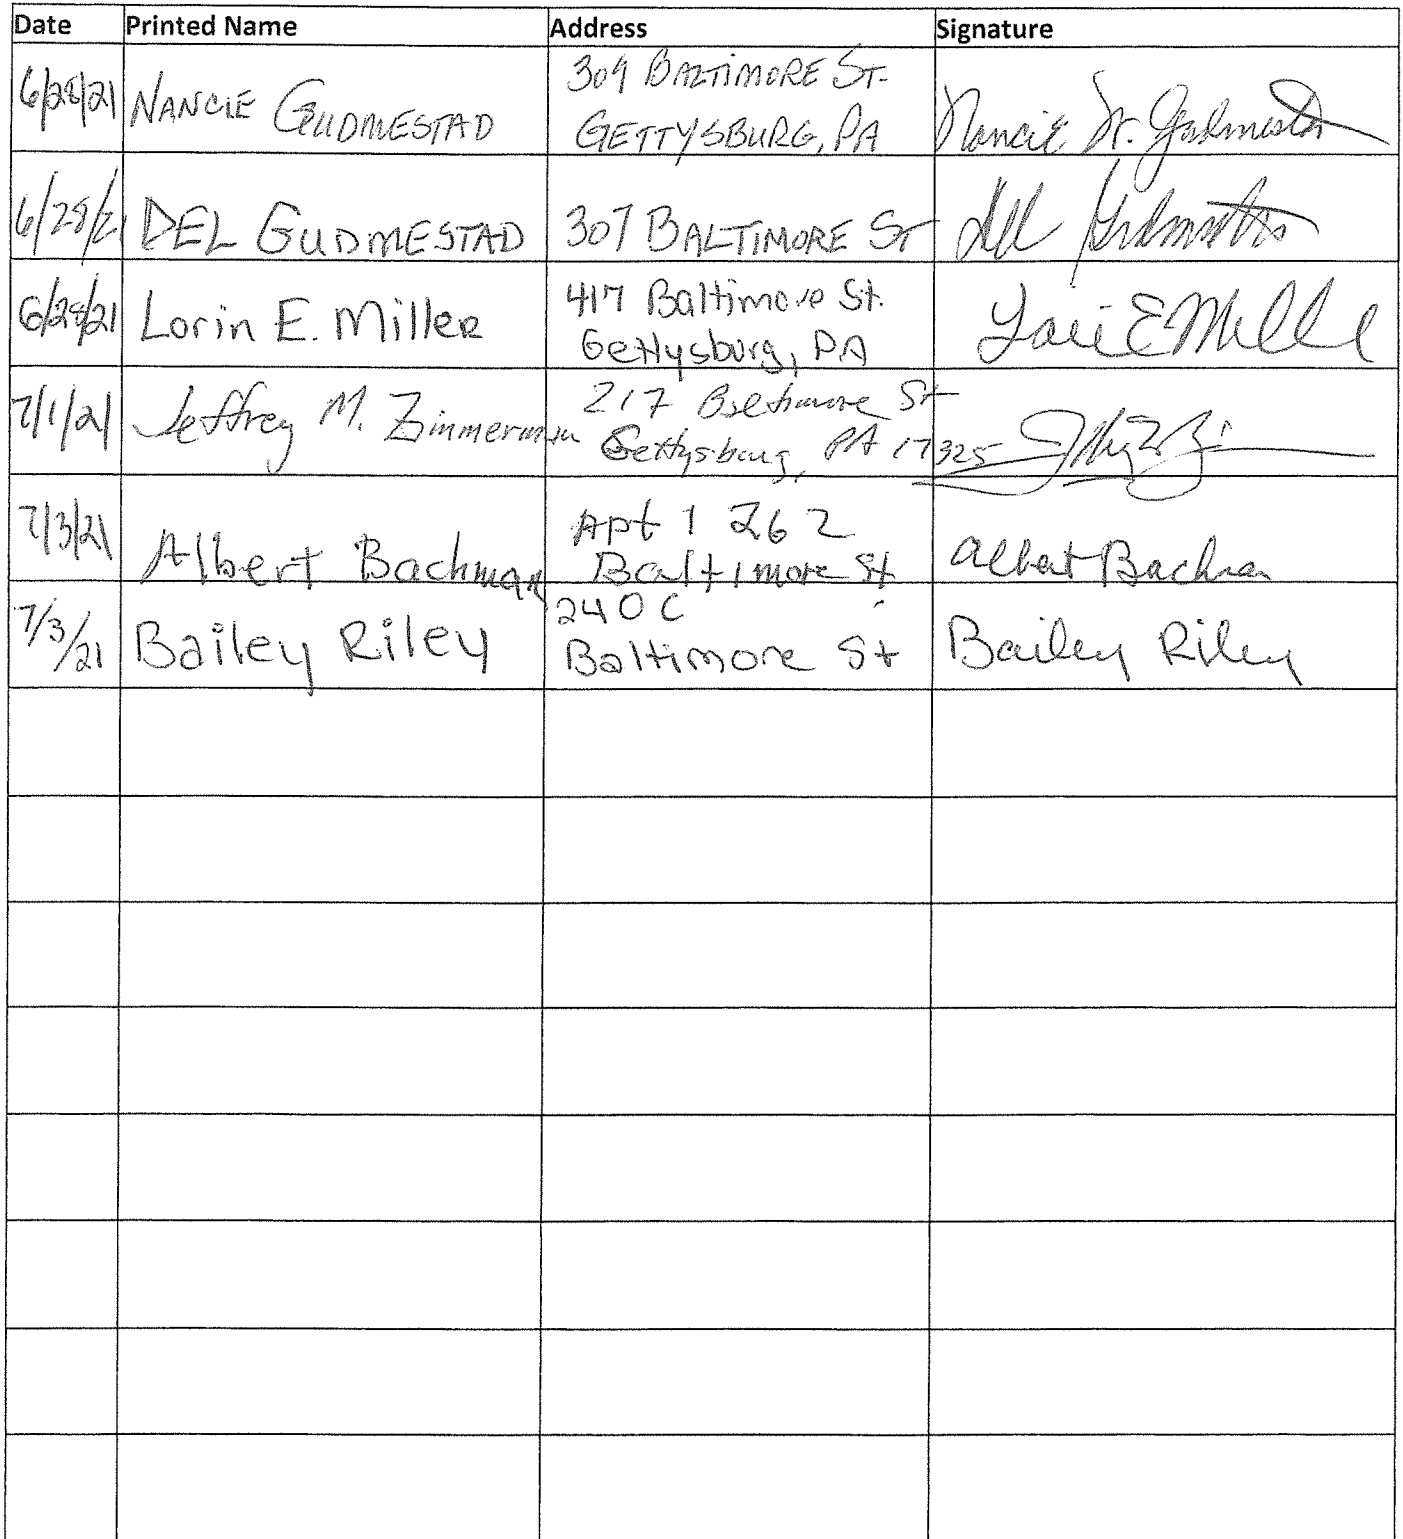 Date Printed Name Address Signature
6/28/21 NANCIE GUDMESTAD 309 BALTIMORE ST.
GETTYSBURG, PA Nancie W. Gudmestad
6/28/21 DEL GUDMESTAD 307 BALTIMORE ST Del Gudmestad
6/28/21 Lorin E. Miller 417 Baltimore St.
Gettysburg, PA Lorin E Miller
7/1/21 Jeffrey M. Zimmerman 217 Baltimore St
Gettysburg, PA 17325
7/3/21 Albert Bachman Apt 1 262
Baltimore St Albert Bachman
7/3/21 Bailey Riley 240 C
Baltimore St Bailey Riley